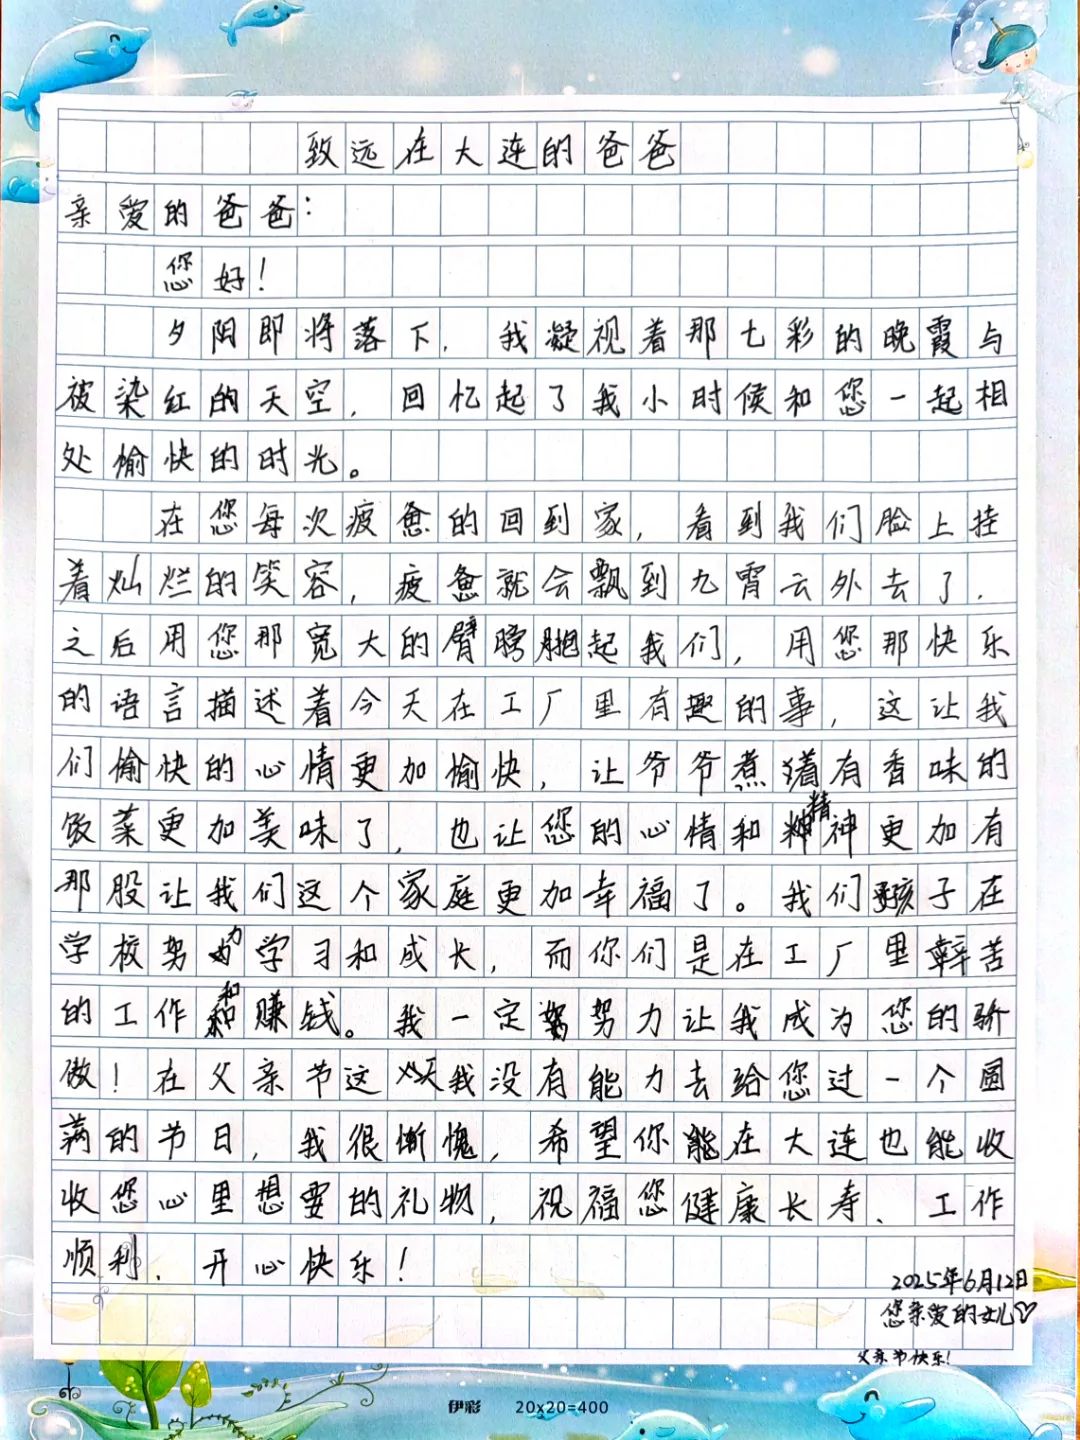 致远在大连的爸爸
亲爱的爸爸：
您好！
夕阳即将落下，我凝视着那七彩的晚霞与
被染红的天空，回忆起了我小时候和您一起相
处愉快的时光。
在您每次疲惫的回到家，看到我们脸上挂
着灿烂的笑容，疲惫就会飘到九霄云外去了，
之后用您那宽大的臂膀抱起我们，用您那快乐
的语言描述着今天在工厂里有趣的事，这让我
们愉快的心情更加愉快，让爷爷煮着有香味的
饭菜更加美味了，也让您的心情和精神更加有
那股让我们这个家庭更加幸福了。我们孩子在
学校努力学习和成长，而你们是在工厂里辛苦
的工作和赚钱。我一定努力让我成为您的骄
傲！在父亲节这天我没有能力去给您过一个圆
满的节日，我很惭愧，希望你能在大连也能收
收您心里想要的礼物，祝福您健康长寿、工作
顺利、开心快乐！
2025年6月12日
您亲爱的女儿♡
父亲节快乐！
伊彩 20x20=400